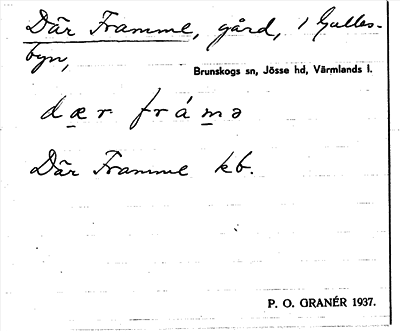 Där Framme, gård, i Gulles-
byn,
Brunskogs sn, Jösse hd, Värmlands l.
dæ̱r frám̱ə
Där Framme kb.
P. O. GRANÉR 1937.